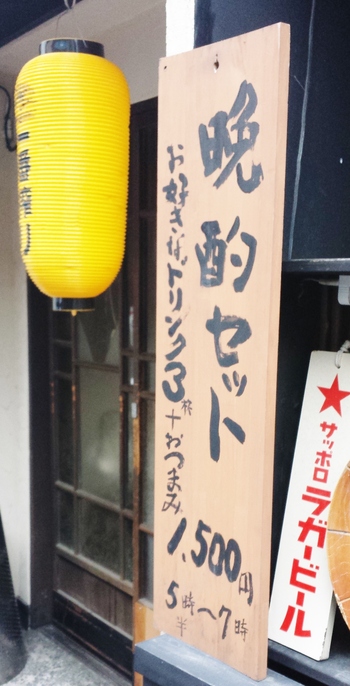 晩酌セット
お好きなドリンク3杯+おつまみ
1,500円
5時半〜7時
★サッポロ
ラガービール
一番搾り